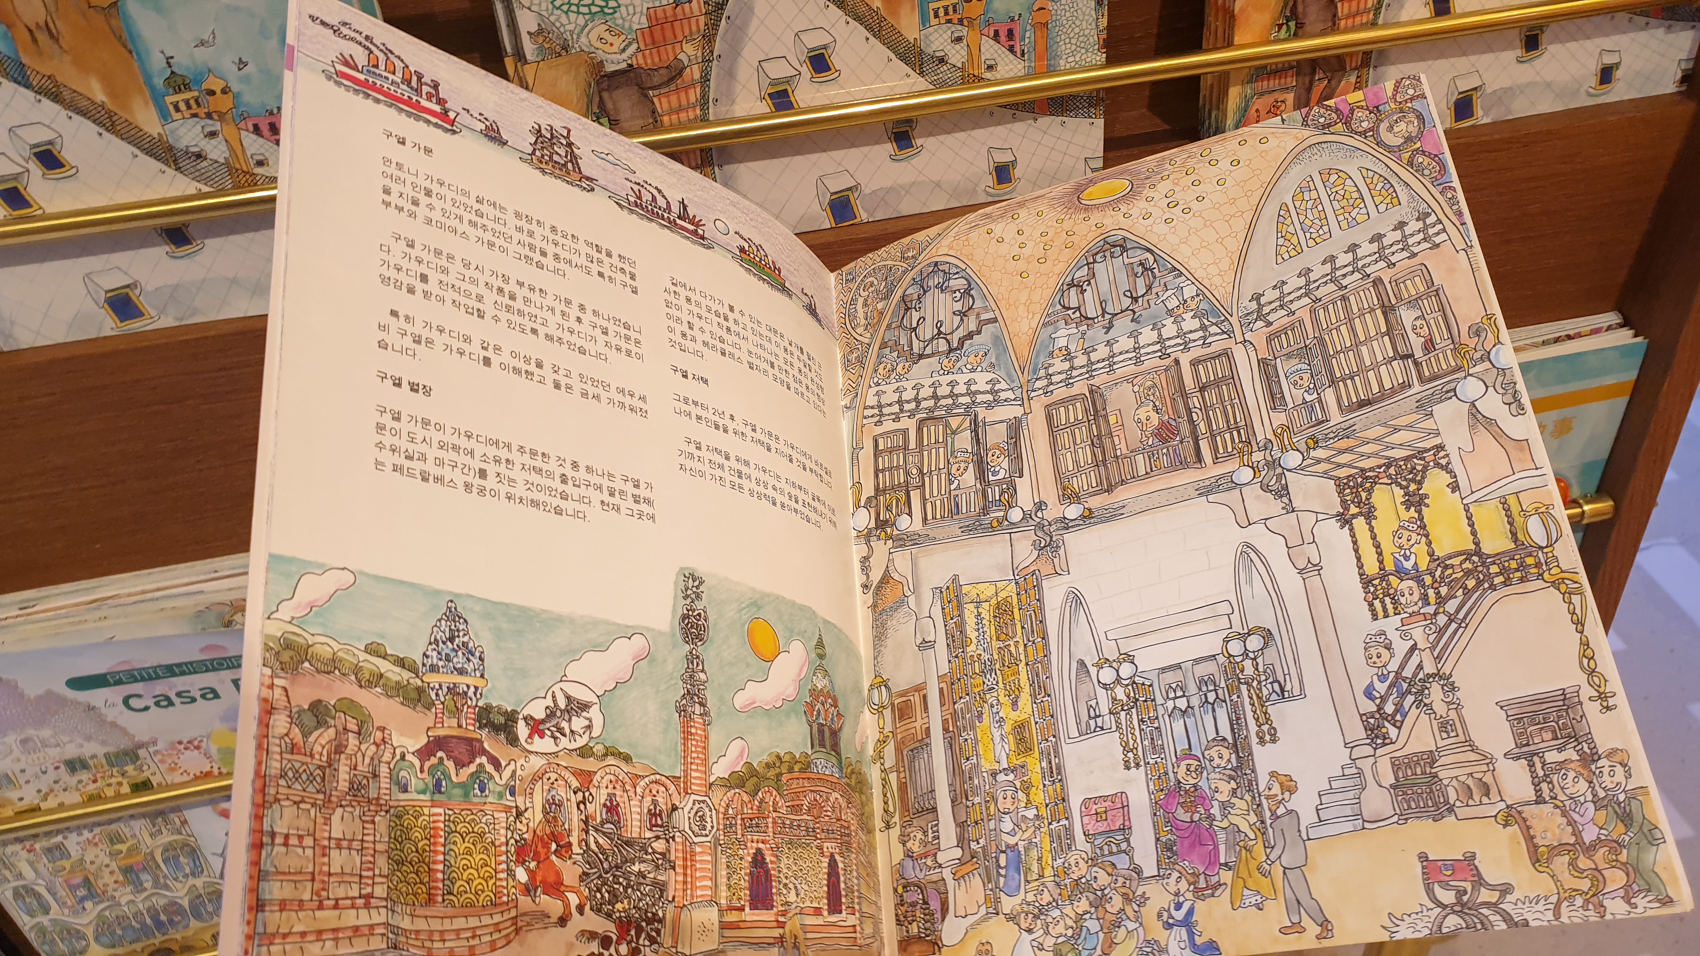 구엘 가문
안토니 가우디의 삶에는 굉장히 중요한 역할을 했던
여러 인물이 있었습니다. 바로 가우디가 많은 건축물
을 지을 수 있게 해주었던 사람들 중에서도 특히 구엘
부부와 코미야스 가문이 그랬습니다.
구엘 가문은 당시 가장 부유한 가문 중 하나였습니
다. 가우디와 그의 작품을 만나게 된 후 구엘 가문은
가우디를 전적으로 신뢰하였고 가우디가 자유로이
영감을 받아 작업할 수 있도록 해주었습니다.
특히 가우디와 같은 이상을 갖고 있었던 에우세
비 구엘은 가우디를 이해했고 둘은 금세 가까워졌
습니다.
구엘 별장
구엘 가문이 가우디에게 주문한 것 중 하나는 구엘 가
문이 도시 외곽에 소유한 저택의 출입구에 딸린 별채(
수위실과 마구간)를 짓는 것이었습니다. 현재 그곳에
는 페드랄베스 왕궁이 위치해있습니다.
길에서 다가가 볼 수 있는 대문은 날개를
사한 용의 모습을 하고 있는데 이 용은
없이 가우디 작품에서 나타나는
이라 할 수 있습니다. 눈여겨볼 만한 점은
이 용과 헤라클레스 별자리 모양을 따르고 있다는
것입니다.
구엘 저택
그로부터 2년 후, 구엘 가문은 가우디에게 바르셀로
나에 본인들을 위한 저택을 지어줄 것을 부탁합니다.
구엘 저택을 위해 가우디는 지하부터 굴뚝에 이르
기까지 전체 건물에 상상 속의 숲을 표현해내기 위해
자신이 가진 모든 상상력을 쏟아부었습니다.
PETITE HISTOIR
de la Casa